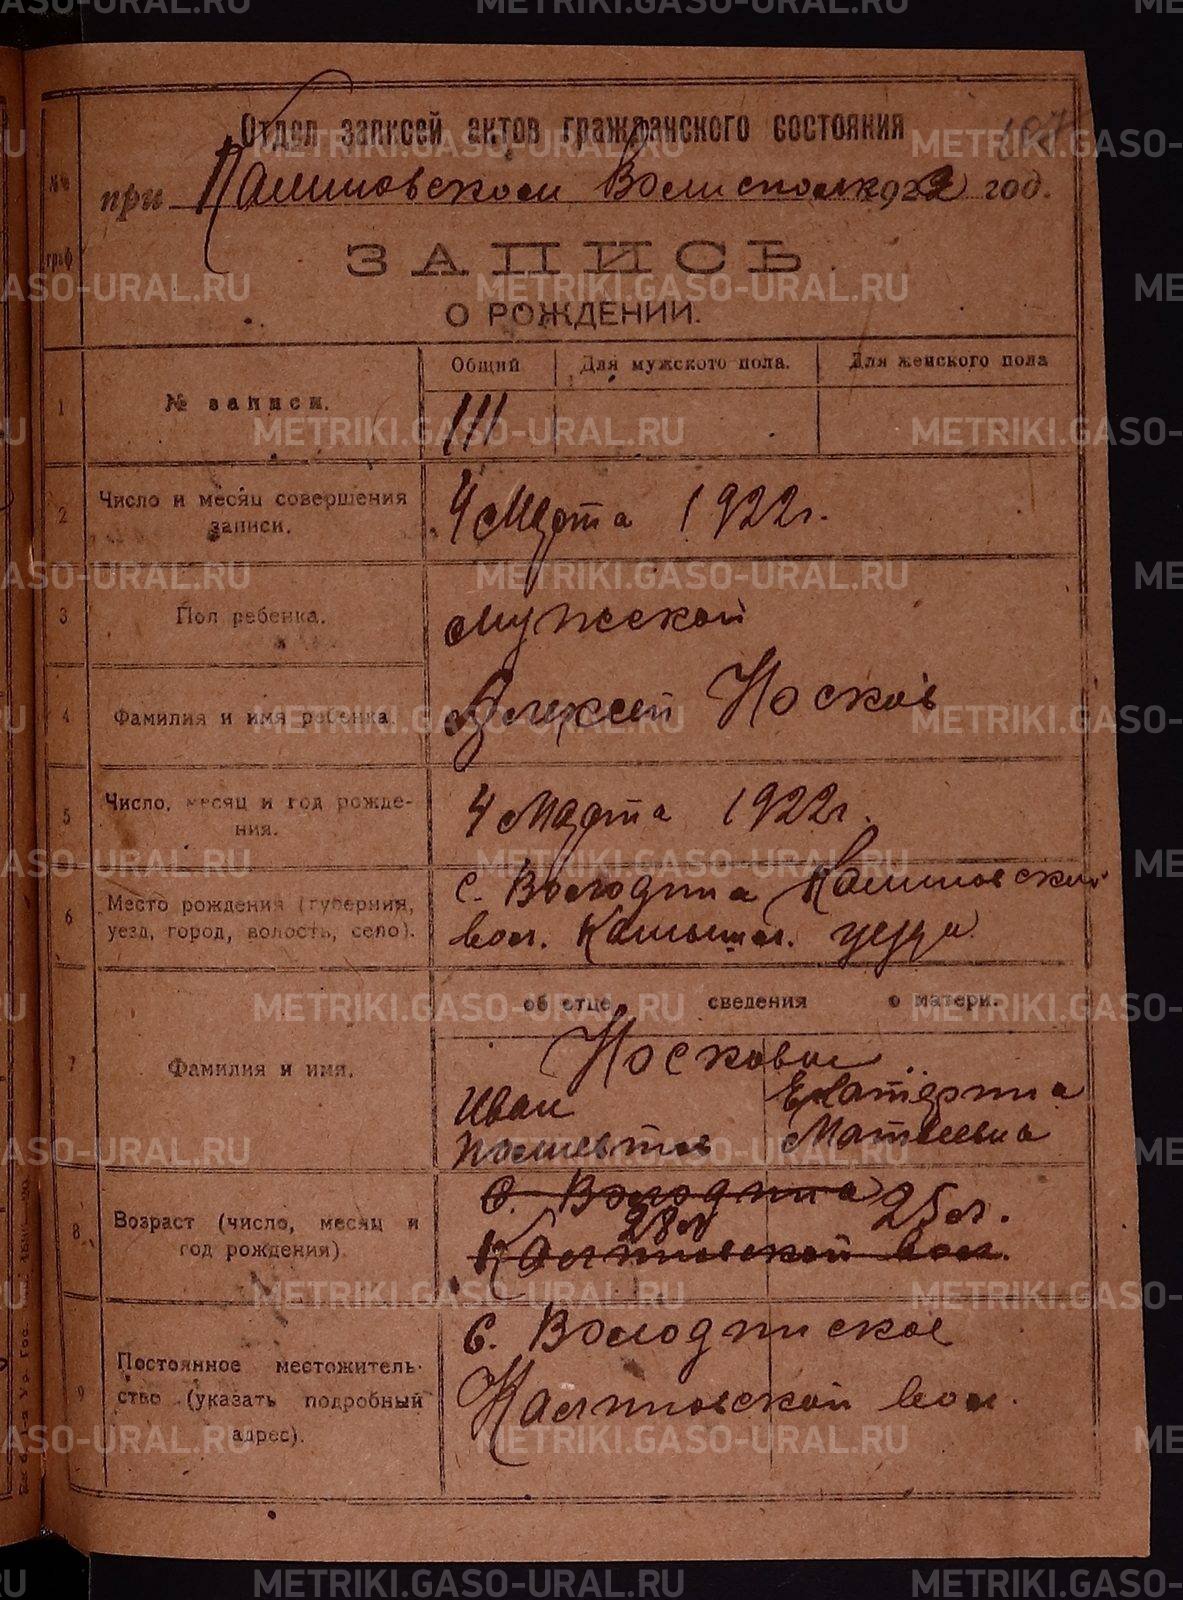 Отдел записей актов гражданского состояния 107
при Калиновском Волисполк 1922 год.
ЗАПИСЬ
О РОЖДЕНИИ.
№№ граф
Общий Для мужского пола. Для женского пола
1 № записи. 111
2 Число и месяц совершения
записи.
4 Марта 1922 г.
3 Пол ребенка. мужской
4 Фамилия и имя ребенка. Алексей Носков
5 Число, месяц и год рожде-
ния.
4 Марта 1922 г.
6 Место рождения (губерния,
уезд, город, волость, село).
с. Володина Калиновской
вол. Камышл. уезда
об отце сведения о матери.
7 Фамилия и имя.
Носковы
Иван Екатерина
Матвеевна
8 Возраст (число, месяц и
год рождения)
С. Володина
28 л 25 л.
Калиновской вол.
9 Постоянное местожитель-
ство (указать подробный
адрес).
С. Володинское
Калиновской вол.
METRIKI.GASO-URAL.RU